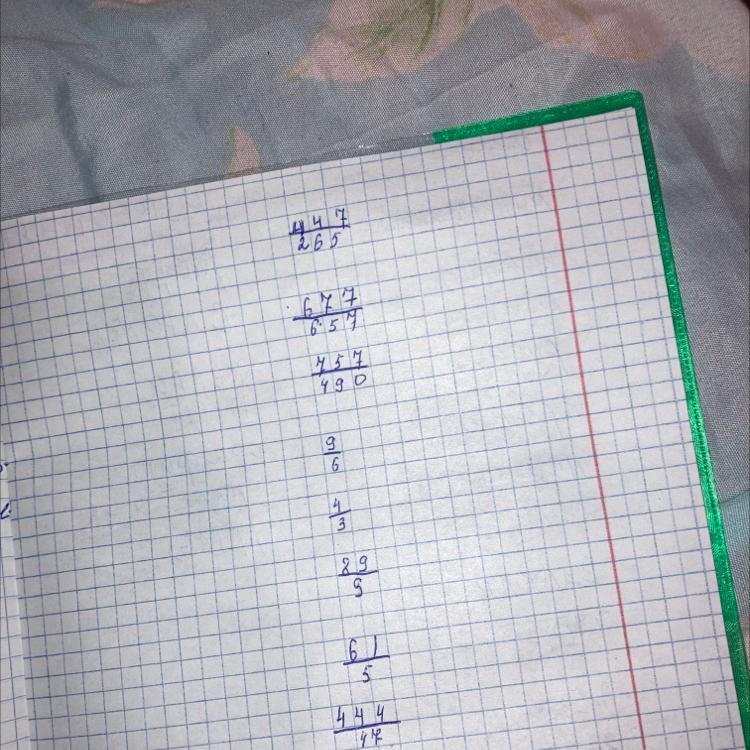 447
265
677
657
757
490
9
6
4
3
89
9
61
5
444
47